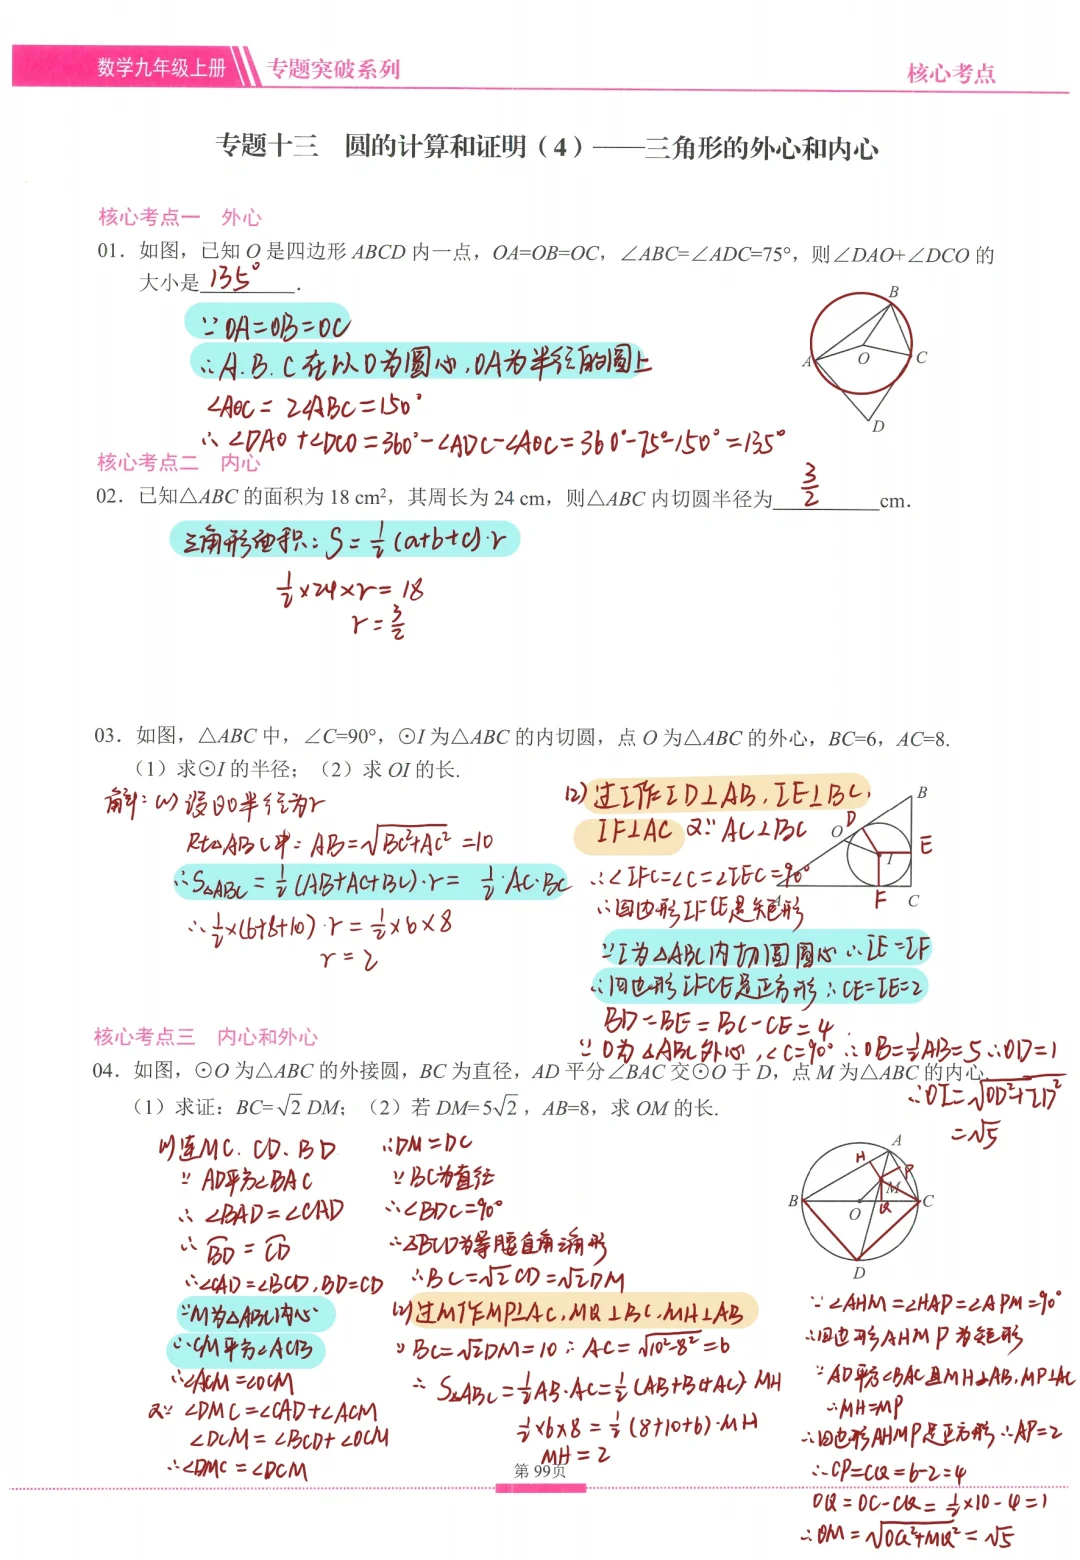 数学九年级上册 专题突破系列 核心考点
专题十三 圆的计算和证明（4）——三角形的外心和内心
核心考点一 外心
01．如图，已知 O 是四边形 ABCD 内一点，OA=OB=OC，∠ABC=∠ADC=75°，则∠DAO+∠DCO 的
大小是 135° ．
∵OA=OB=OC
∴A.B.C在以O为圆心,OA为半径的圆上
∠AOC = 2∠ABC=150°
∴∠DAO+∠DCO=360°-∠ADC-∠AOC=360°-75°-150°=135°
B
A
O
C
D
核心考点二 内心
02．已知△ABC 的面积为 18 cm²，其周长为 24 cm，则△ABC 内切圆半径为 3/2 cm．
三角形面积: S=1/2(a+b+c)·r
1/2×24×r=18
r=3/2
03．如图，△ABC 中，∠C=90°，⊙I 为△ABC 的内切圆，点 O 为△ABC 的外心，BC=6，AC=8.
（1）求⊙I 的半径；（2）求 OI 的长.
解:(1)设⊙O半径为r
Rt△ABC中: AB=√BC²+AC² =10
∴S△ABC=1/2(AB+AC+BC)·r= 1/2·AC·BC
∴1/2×(6+8+10)·r=1/2×6×8
r=2
(2)过I作ID⊥AB,IE⊥BC,
IF⊥AC 又∵AC⊥BC
∴∠IFC=∠C=∠IEC=90°
∴四边形IFCE是矩形
∵I为△ABC内切圆圆心∴IE=IF
∴四边形IFCE是正方形∴CE=IE=2
BD=BE=BC-CE=4.
∵O为△ABC外心,∠C=90°∴OB=1/2AB=5∴OD=1
∴OI=√OD²+ID²
=√5
B
D
O
E
I
A
F
C
核心考点三 内心和外心
04．如图，⊙O 为△ABC 的外接圆，BC 为直径，AD 平分∠BAC 交⊙O 于 D，点 M 为△ABC 的内心.
（1）求证：BC=√2 DM；（2）若 DM=5√2，AB=8，求 OM 的长.
(1)连MC.CD.BD
∵AD平分∠BAC
∴∠BAD=∠CAD
∴BD=CD
∴∠CAD=∠BCD,BD=CD
∵M为△ABC内心
∴CM平分∠ACB
∴∠ACM=∠OCM
又∵∠DMC=∠CAD+∠ACM
∠DCM=∠BCD+∠OCM
∴∠DMC=∠DCM
∴DM=DC
∵BC为直径
∴∠BDC=90°
∴△BCD为等腰直角三角形
∴BC=√2CD=√2DM
(2)过M作MP⊥AC,MQ⊥BC,MH⊥AB
∵BC=√2DM=10∴AC=√10²-8²=6
∴S△ABC=1/2AB·AC=1/2(AB+BC+AC)·MH
1/2×6×8=1/2(8+10+6)·MH
MH=2
A
H
P
M
B
O
Q
C
D
∵∠AHM=∠HAP=∠APM=90°
∴四边形AHMP为矩形
∵AD平分∠BAC且MH⊥AB,MP⊥AC
∴MH=MP
∴四边形AHMP是正方形∴AP=2
∴CP=CQ=6-2=4
OQ=OC-CQ=1/2×10-4=1
∴OM=√OQ²+MQ²=√5
第 99页